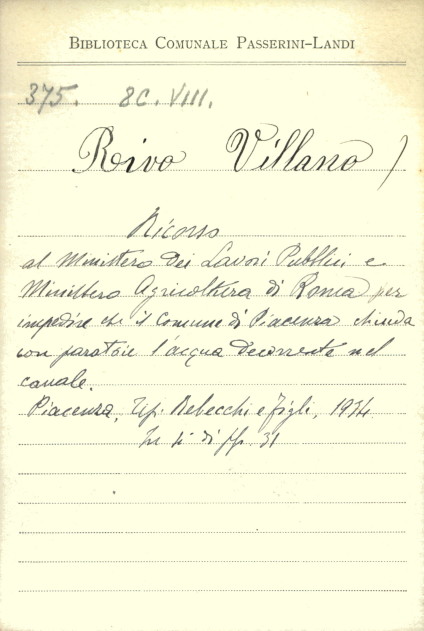 BIBLIOTECA COMUNALE PASSERINI-LANDI
375. 8C. VIII.
Rivo Villano /
Ricorso
al Ministero dei Lavori Pubblici e
Ministero Agricoltura di Roma per
impedire che il Comune di Piacenza chiuda
con paratoie l'acqua decorrente nel
canale.
Piacenza, Tip. Rebecchi e figli, 1934
In 4° di pp. 31